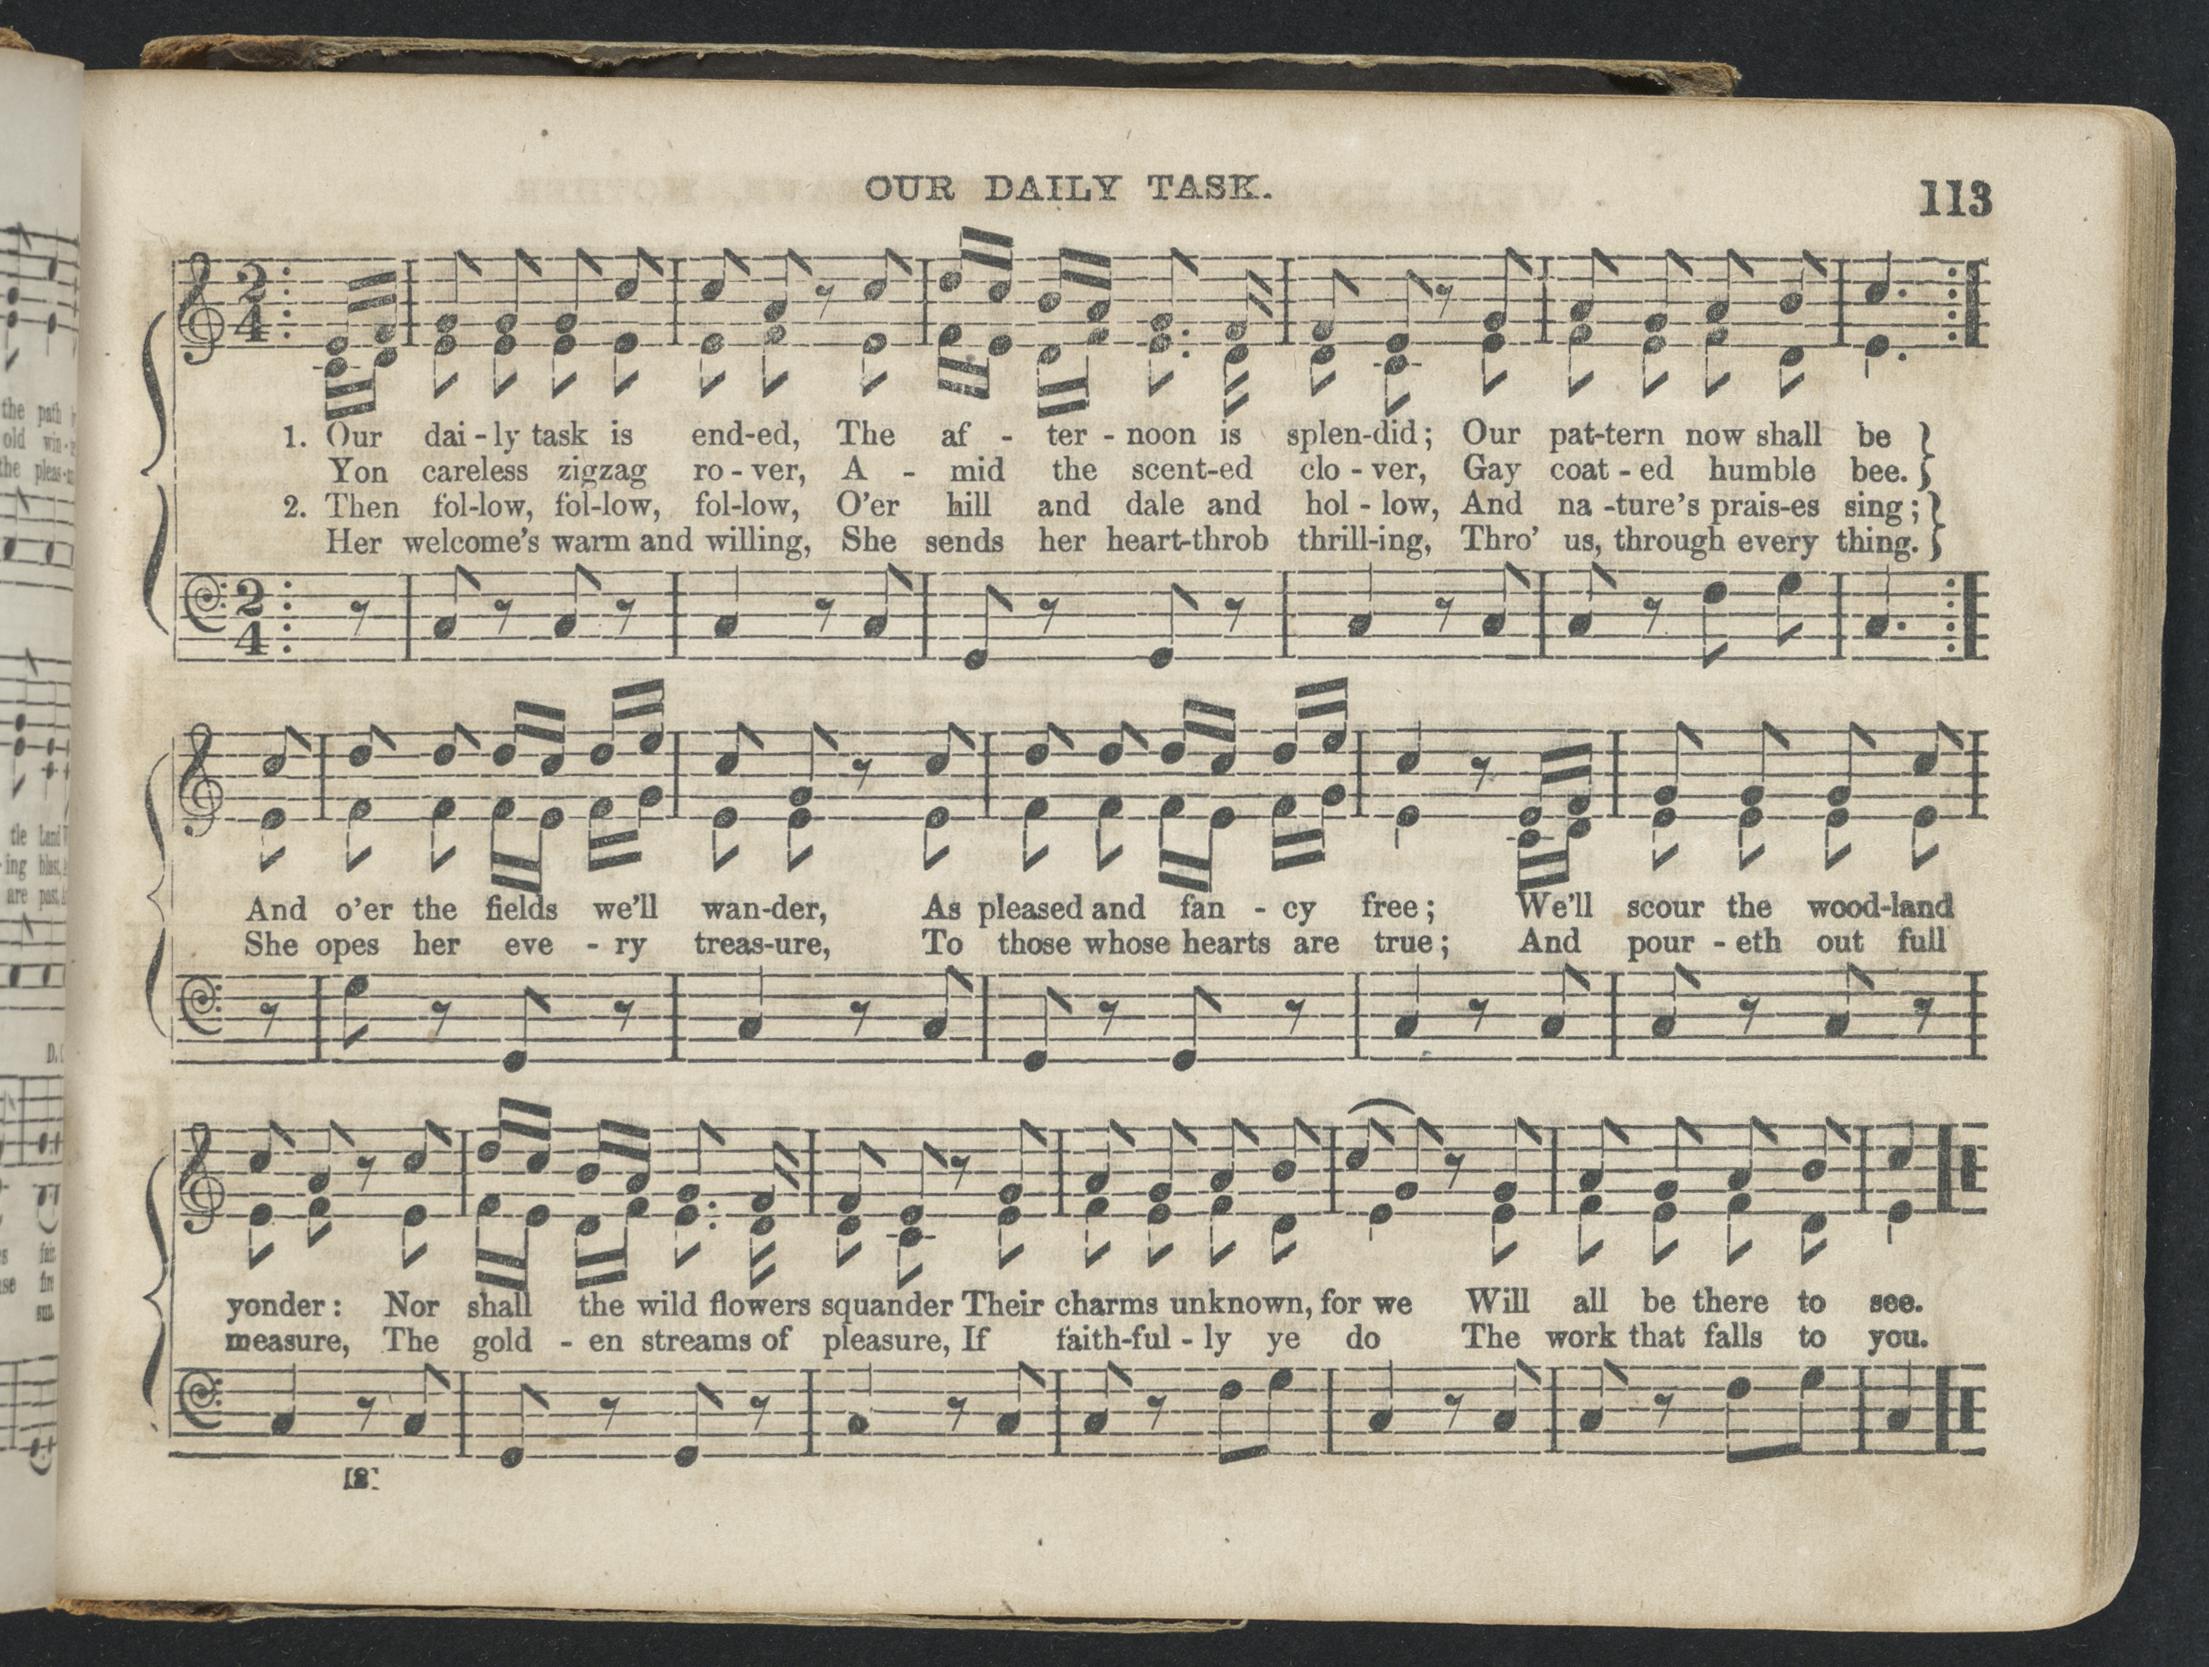 OUR DAILY TASK.
113
1. Our dai - ly task is end-ed, The af - ter - noon is splen-did; Our pat-tern now shall be
Yon careless zigzag ro - ver, A - mid the scent-ed clo - ver, Gay coat - ed humble bee.
2. Then fol-low, fol-low, fol-low, O'er hill and dale and hol - low, And na -ture's prais-es sing;
Her welcome's warm and willing, She sends her heart-throb thrill-ing, Thro' us, through every thing.
And o'er the fields we'll wan-der, As pleased and fan - cy free; We'll scour the wood-land
She opes her eve - ry treas-ure, To those whose hearts are true; And pour - eth out full
yonder: Nor shall the wild flowers squander Their charms unknown, for we Will all be there to see.
measure, The gold - en streams of pleasure, If faith-ful - ly ye do The work that falls to you.
[8]